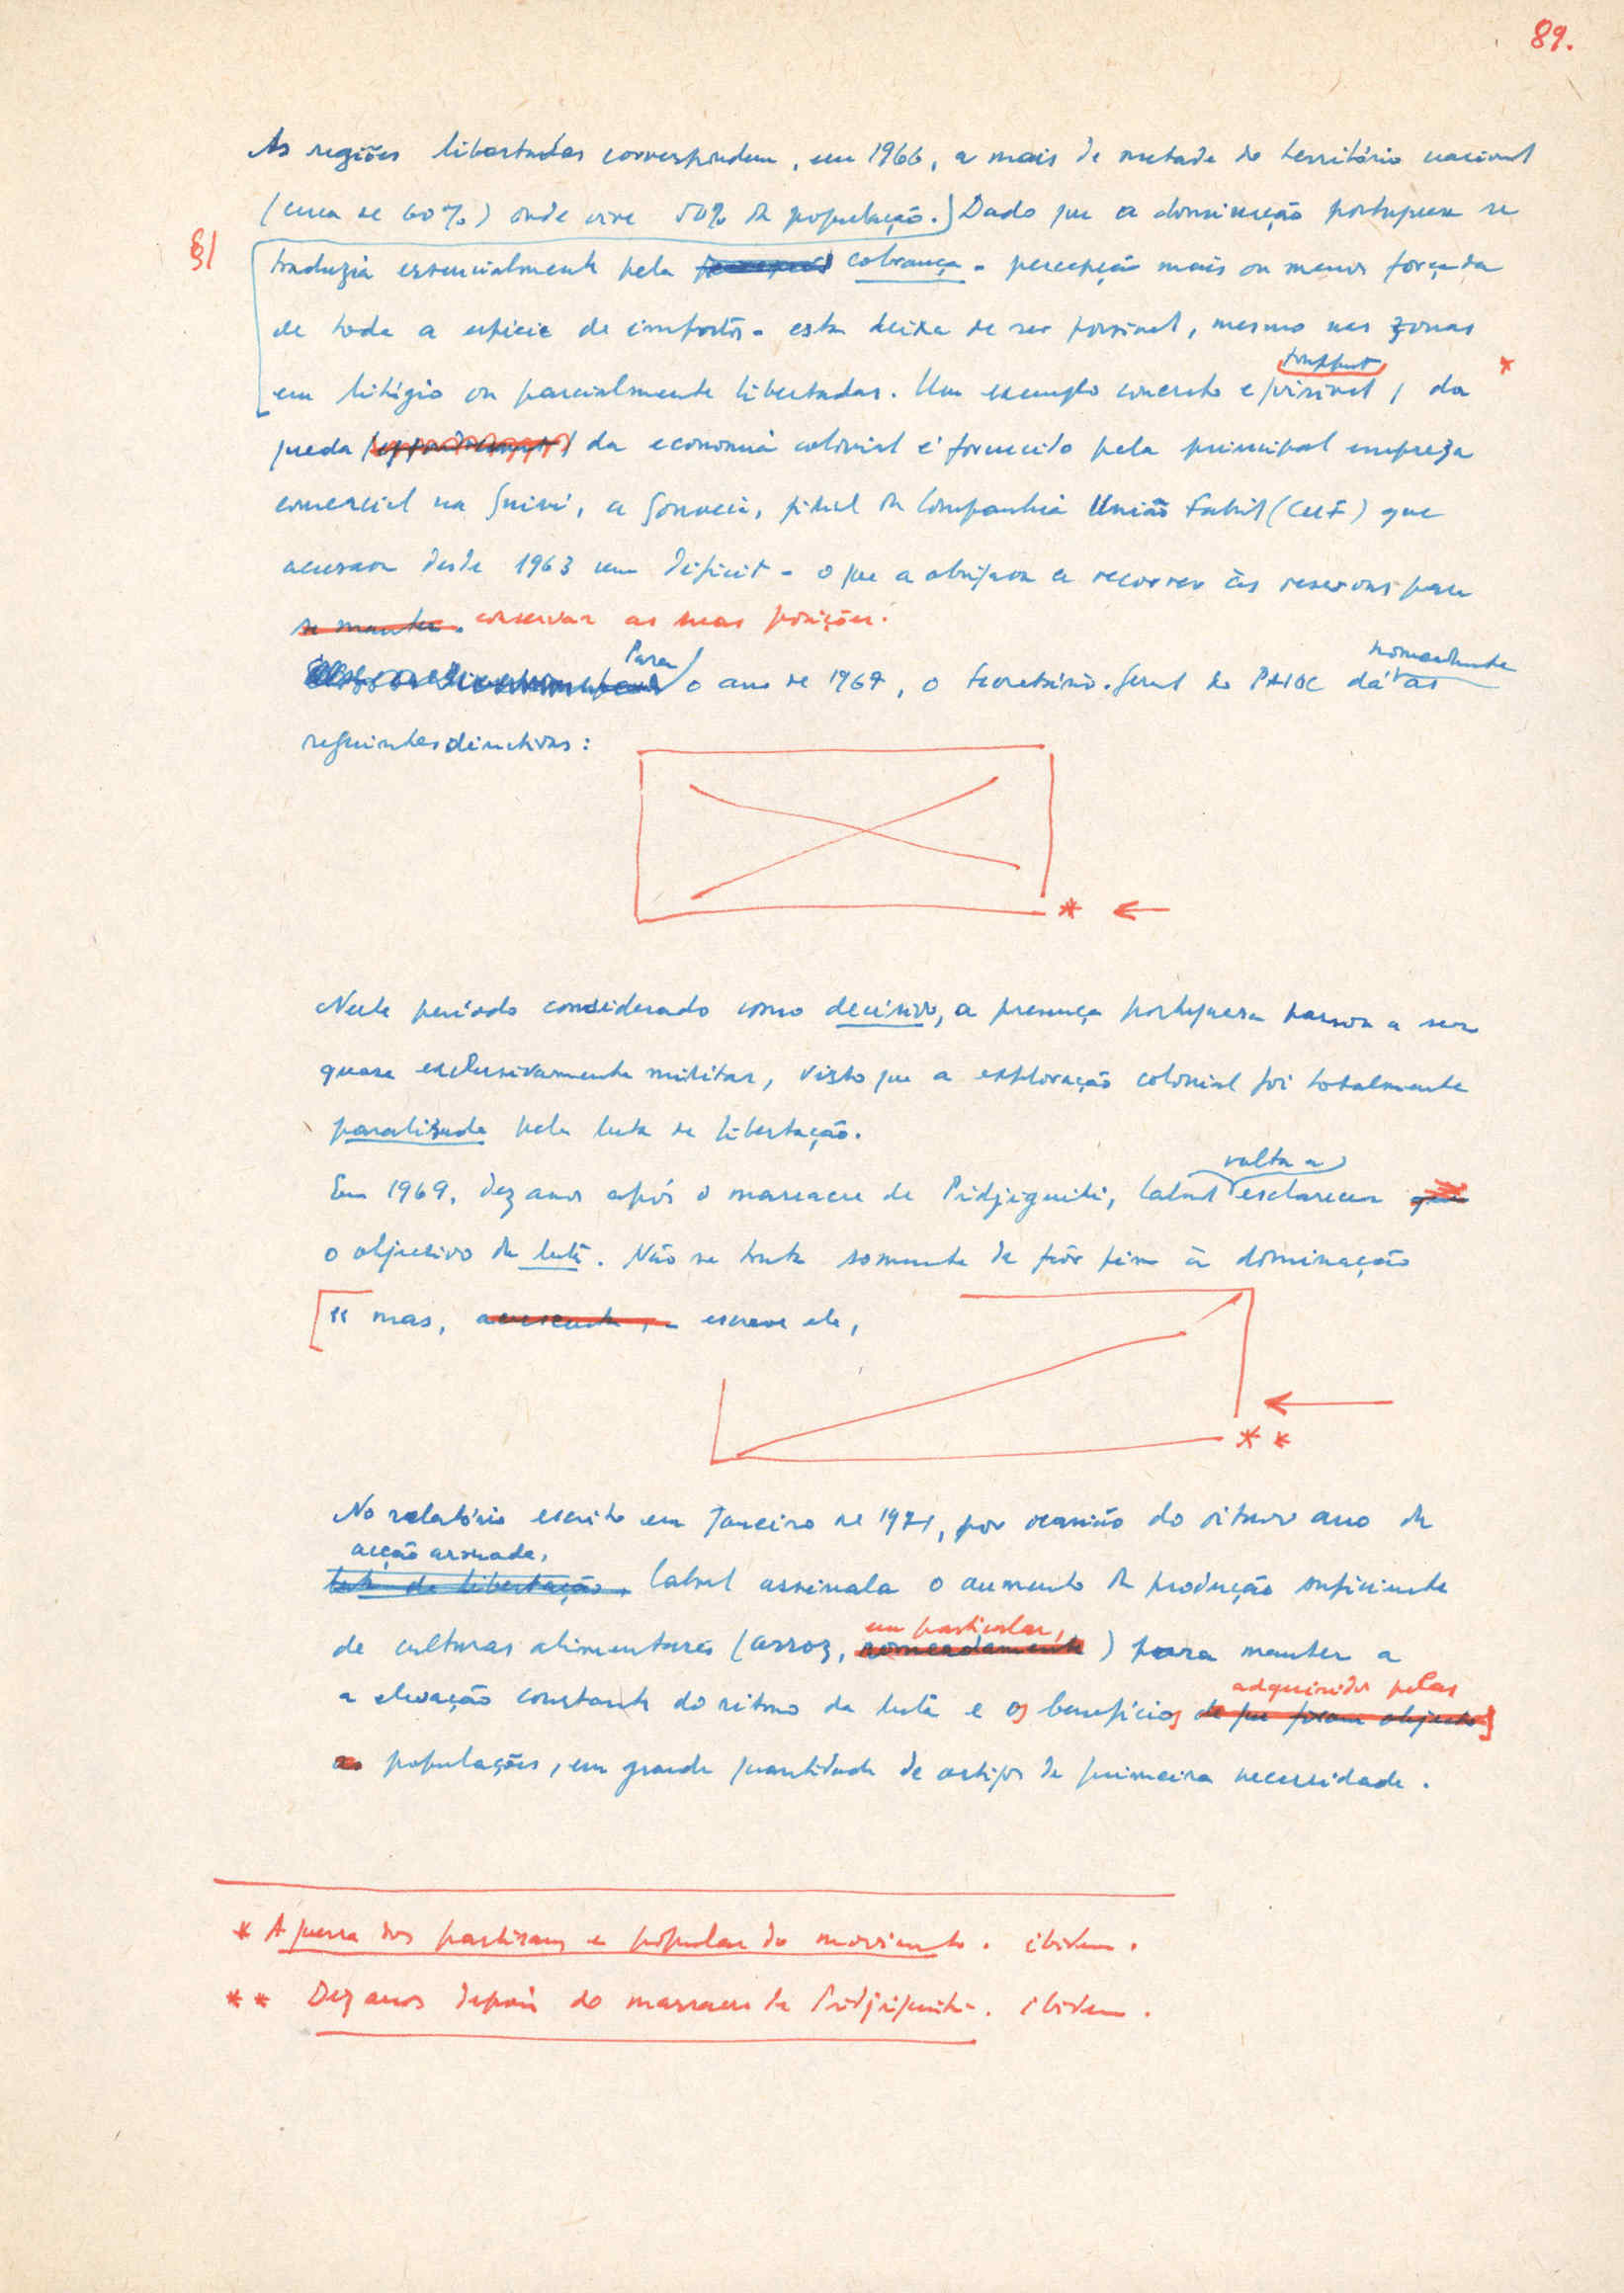 89.
As regiões libertadas correspondem, em 1966, a mais de metade do território nacional
(cerca de 60%) onde vive 50% da população.) Dado que a dominação portuguesa se
§/
traduzia essencialmente pela cobrança - percepção mais ou menos forçada
de toda a espécie de impostos - esta deixa de ser possível, mesmo nas zonas
em litígio ou parcialmente libertadas. Um exemplo concreto e visível, da *
queda da economia colonial é fornecido pela principal empreza
comercial na Guiné, a Gouveia, filial da Companhia União Fabril (CUF) que
acusava desde 1963 um deficit - o que a obrigava a recorrer às reservas para
se manter. conservar as suas posições.
Para o ano de 1967, o Secretário-Geral do PAIGC dá nomeadamente as
seguintes directivas:
* ←
Neste período considerado como decisivo, a presença portuguesa passou a ser
quase exclusivamente militar, visto que a exploração colonial foi totalmente
paralisada pela luta de libertação.
Em 1969, dez anos após o massacre de Pidjiguiti, Cabral volta a esclarecer que
o objectivo da luta. Não se trata somente de pôr fim à dominação
« mas, acrescenta, - escreve ele,
←
* *
No relatório escrito em Janeiro de 1971, por ocasião do oitavo ano da
acção armada,
luta de libertação, Cabral assinala o aumento da produção suficiente
em particular,
de culturas alimentares (arroz, nomeadamente) para manter a
adquiridos pelas
a elevação constante do ritmo da luta e os benefícios de que foram objecto
as populações, em grande quantidade de artigos de primeira necessidade.
* A guerra dos partisans e popular do movimento. ibidem.
* * Dez anos depois do massacre de Pidjiguiti. ibidem.